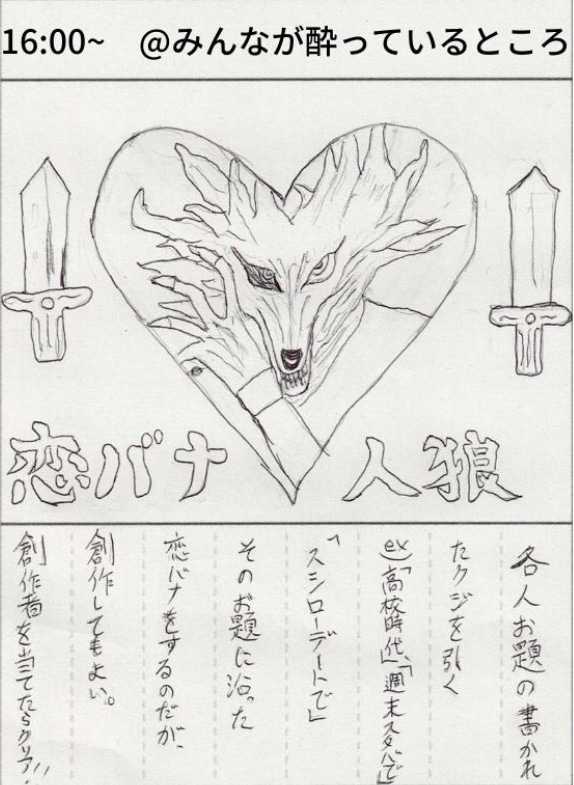 16:00~ @みんなが酔っているところ
恋バナ 人狼
各人お題の書かれ
たクジを引く
ex)「高校時代」、「週末スタバで」
「スシローデートで」
そのお題に沿った
恋バナをするのだが、
創作してもよい。
創作者を当てたらクリア!!